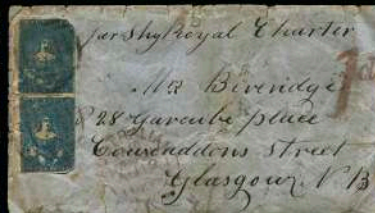 per Ship Royal Charter
Mr Beveridge
28 Garcube place
Cowcaddons Street
Glasgow N B
1d